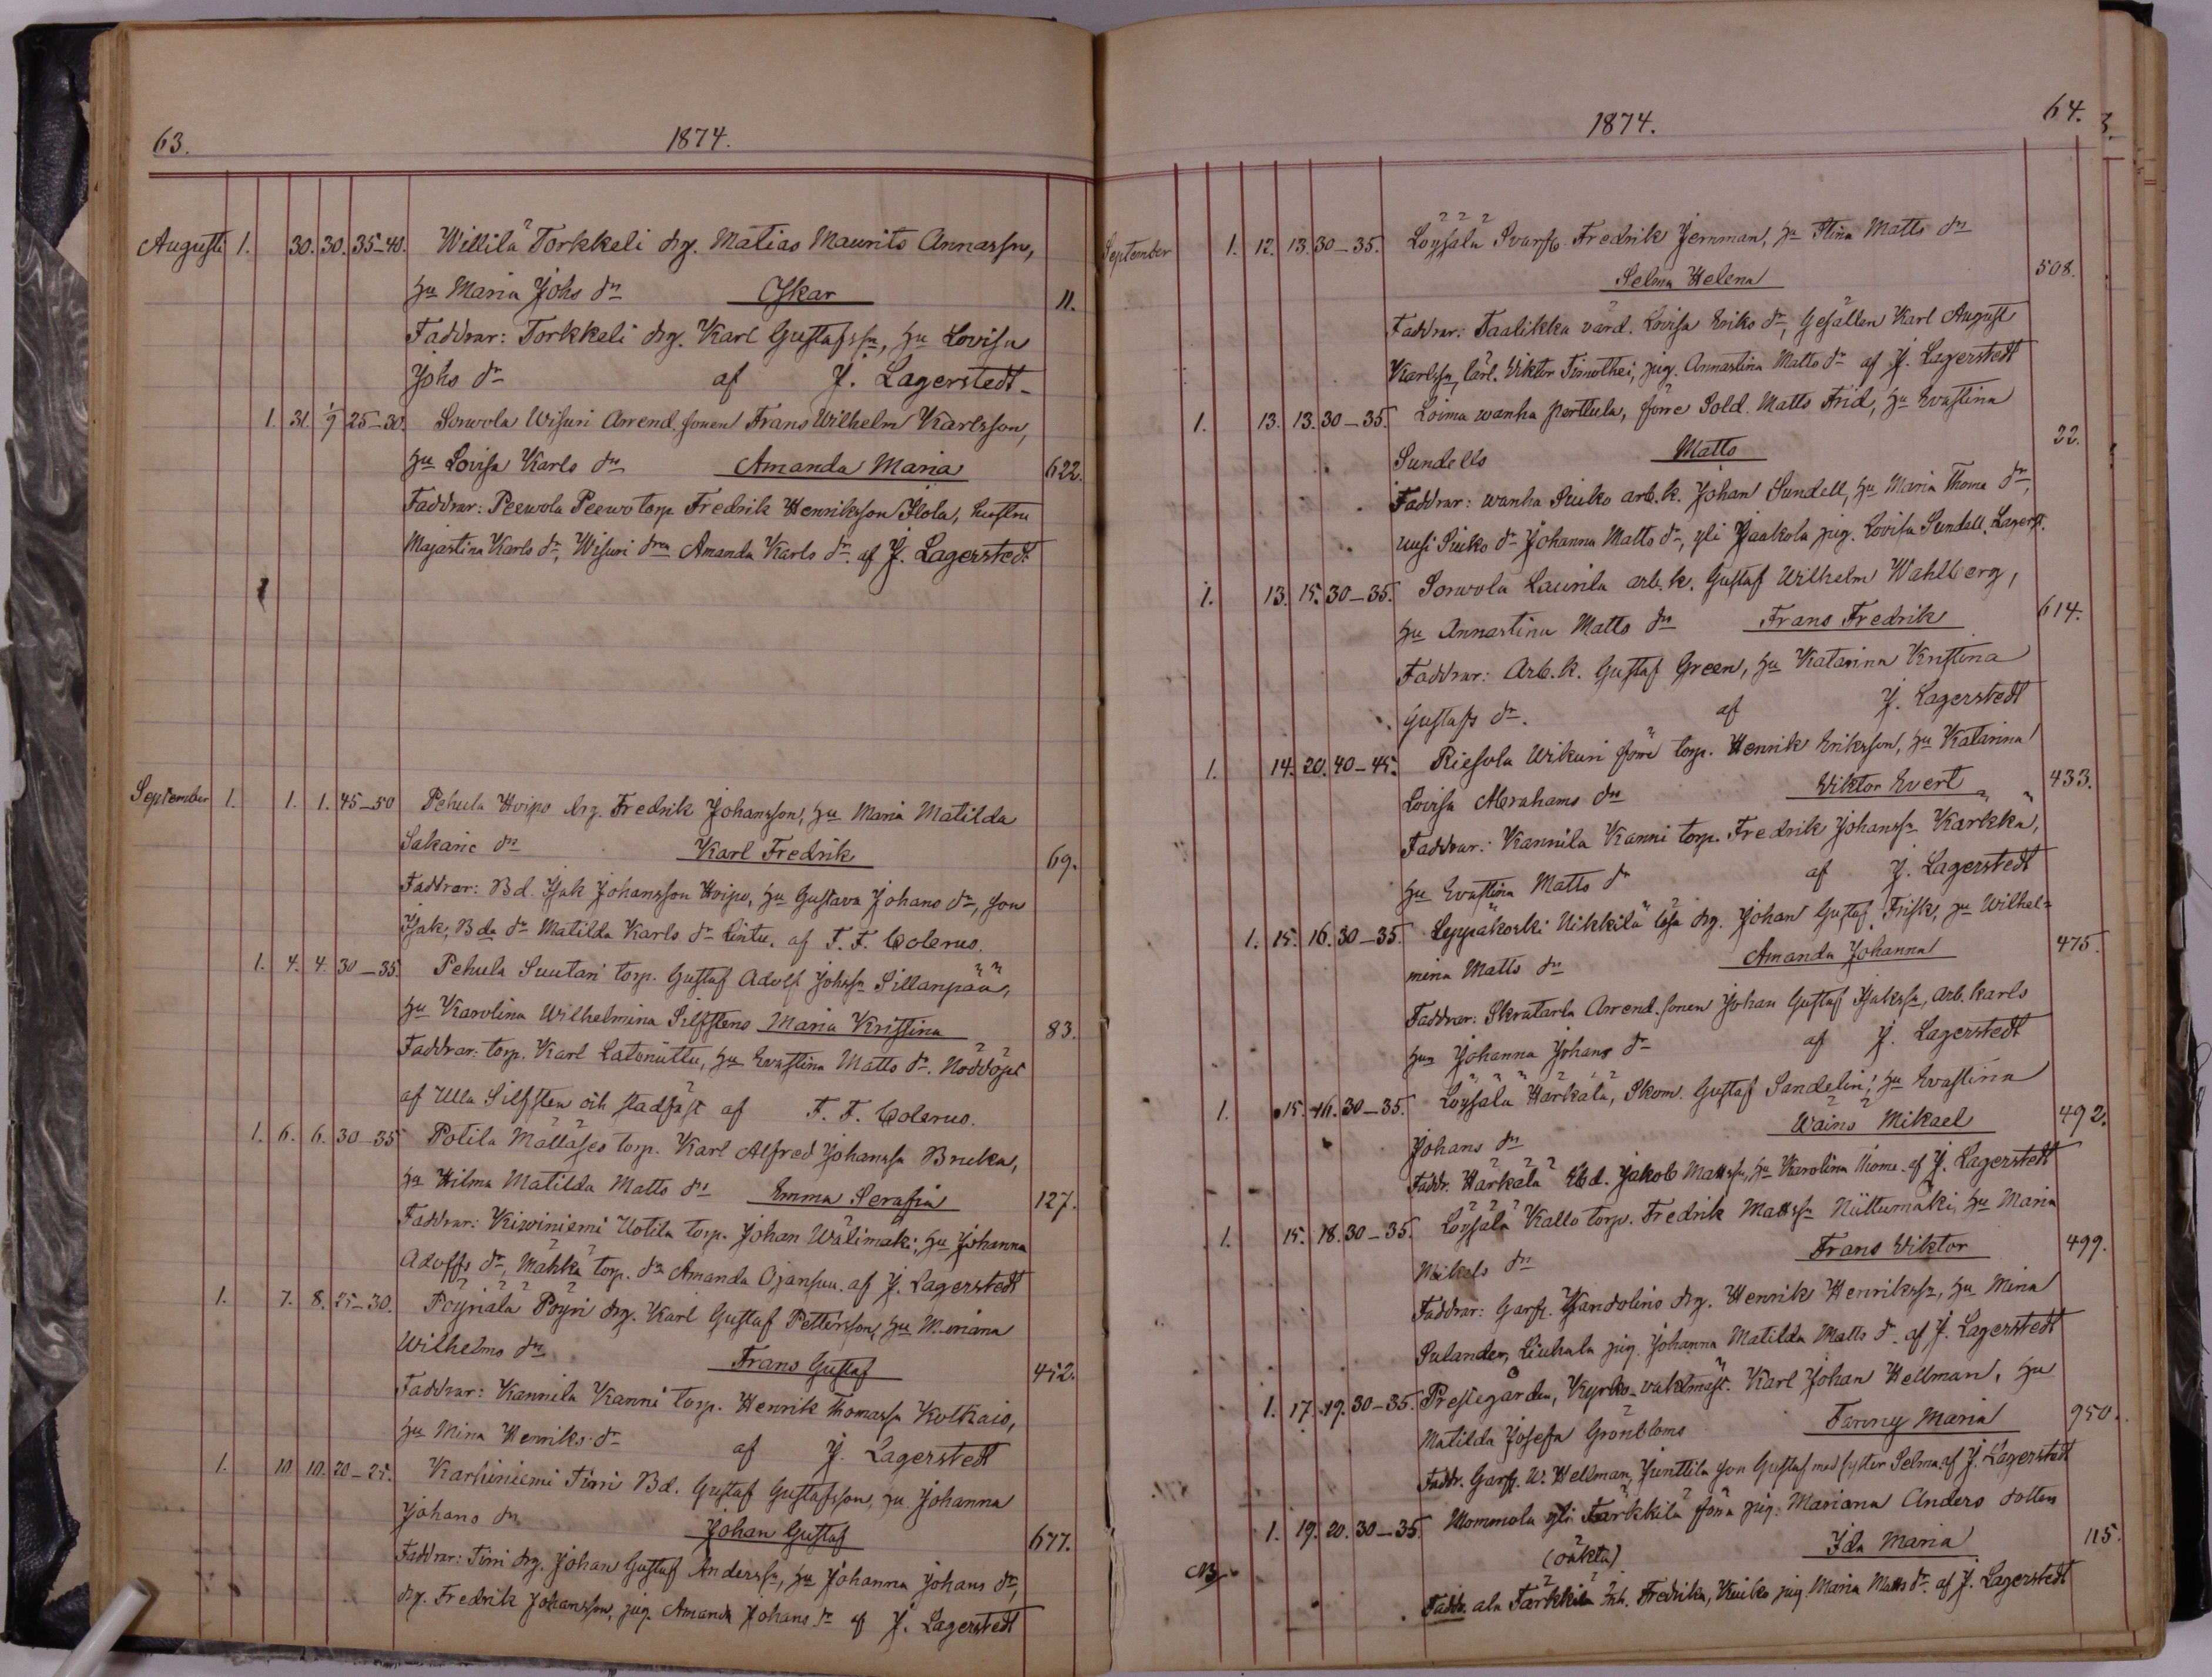 63. 1874.
Augusti 1. 30. 30. 35-40. Willilä Torkkeli drg. Matias Maurits Annassn,
hu Maria Johs dr Oskar 11.
Faddrar: Torkkeli drg. Karl Gustafssn, hu Lovisa
Johs dr af J. Lagerstedt
1. 31. 1/9 25-30. Sorwola Wisuri Arrend. sonen Frans Wilhelm Karlsson,
hu Lovisa Karls dr Amanda Maria 622.
Faddrar: Peewola Peewo torp. Fredrik Henriksson Ilola, hustru
Majastina Karls dr, Wisuri drn Amanda Karls dr af J. Lagerstedt
September 1. 1. 1. 45-50 Pehula Hoipo drg. Fredrik Johansson, hu Maria Matilda
Sakaric dr Karl Fredrik 69.
Faddrar: Bd. Isak Johansson Hoipo, hu Gustava Johans dr, son
Isak, Bda dr Matilda Karls dr Lintu. af F. F. Colerus.
1. 4. 4. 30-35. Pehula Suutari torp. Gustaf Adolf Johssn Sillanpää,
hu Karolina Wilhelmina Silfstens Maria Kristina 83.
Faddrar: torp. Karl Latoniittu, hu Evastina Matts dr. Nöddöpt
af Ulla Silfsten och stadfäst af F. F. Colerus.
1. 6. 6. 30-35 Potila Mällässes torp. Karl Alfred Johanssn Bruka,
hu Hilma Matilda Matts dr Emma Serafia 127.
Faddrar: Kiwiniemi Uotila torp. Johan Wälimäki, hu Johanna
Adolfs dr, Mähkä torp. dr Amanda Ojansuu. af J. Lagerstedt
1. 7. 8. 25-30. Pöyriälä Pöyri drg. Karl Gustaf Pettersson, hu Mariana
Wilhelms dr Frans Gustaf 452.
Faddrar: Kannila Kanni torp. Henrik Thomassn Kolkais,
hu Mina Henriks dr af J. Lagerstedt
1. 10. 10. 20-25. Karhiniemi Tirri Bd. Gustaf Gustafsson, hu Johanna
Johans dr Johan Gustaf 677.
Faddrar: Tirri drg. Johan Gustaf Anderssn, hu Johanna Johans dr,
drg. Fredrik Johansson, pig. Amanda Johans dr af J. Lagerstedt
1874. 64.
September 1. 12. 13. 30-35. Löysälä Svarfv. Fredrik Jernman, hu Stina Matts dr
Selma Helena 508.
Faddrar: Taatikka värd. Lovisa Eriks dr, Gesällen Karl August
Karlssn, lärl. Viktor Timothei, pig. Annastina Matts dr af J. Lagerstedt
1. 13. 13. 30-35. Loima wanha perttula, förre Sold. Matts Frid, hu Evastina
Sundells Matts 22.
Faddrar: wanha Suiko arb.k. Johan Sundell, hu Maria Thoma dr,
uusi Suiko dr Johanna Matts dr, yli Jaakola pig. Lovisa Sundell. Lagerst.
1. 13. 15. 30-35. Sorwola Laurila arb.k. Gustaf Wilhelm Wahlberg,
hu Annastina Matts dr Frans Fredrik 614.
Faddrar: Arb.k. Gustaf Green, hu Katarina Kristina
Gustafs dr. af J. Lagerstedt
1. 14. 20. 40-45. Riesola Wikuri förre torp. Henrik Eriksson, hu Katarina
Lovisa Abrahams dr Viktor Evert 433.
Faddrar: Kannila Kanni torp. Fredrik Johanssn Kärkkä,
hu Evastina Matts dr af J. Lagerstedt
1. 15. 16. 30-35. Leppäkoski Uikkilä lösa drg. Johan Gustaf Frisk, hu Wilhel=
mina Matts dr Amanda Johanna 475.
Faddrar: Skratarla Arrend. sonen Johan Gustaf Isakssn, arb. karls
hun Johanna Johans dr af J. Lagerstedt
1. 15. 16. 30-35. Löysälä Härkälä, Skom. Gustaf Sandelin, hu Evastina
Johans dr Wäinö Mikael 492.
Faddr. Härkälä Bd. Jakob Mattssn, hu Karolina Thoma. af J. Lagerstedt
1. 15. 18. 30-35. Löysälä Kallo torp. Fredrik Mattssn Niittumäki, hu Maria
Mikels dr Frans Viktor 499.
Faddrar: Garfv. Kandolins drg. Henrik Henrikssn, hu Mina
Sulander, Liuhala pig. Johanna Matilda Matts dr af J. Lagerstedt
1. 17. 19. 30-35. Prestegården, Kyrko-vaktmäst. Karl Johan Hellman, hu
Matilda Josefa Grönbloms Fanny Maria 950.
Faddr. Garfv. W. Hellman, Junttila son Gustaf med syster Selma. af J. Lagerstedt
1. 19. 20. 30-35. Mommola yli Tarkkila förra pig. Mariana Anders dotters
NB (oäkta) Ida Maria 115.
Faddr. ala Tarkkila Inh. Fredrika, Kuiko pig. Maria Matts dr. af J. Lagerstedt